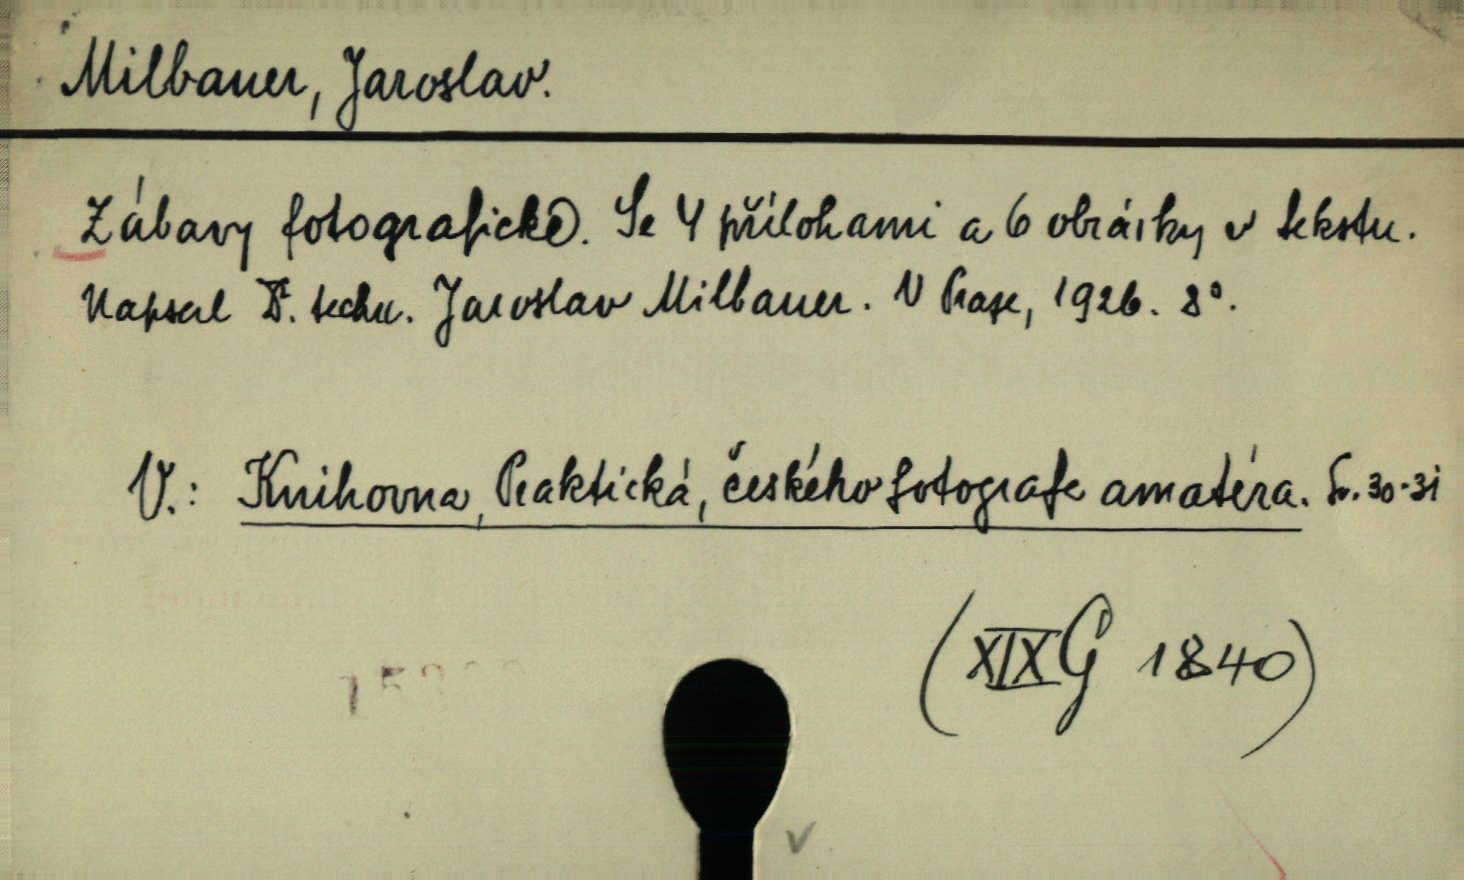 Milbauer, Jaroslav.
Zábavy fotografické. Se 4 přílohami a 6 obrázky v tekstu.
Napsal Dr. techn. Jaroslav Milbauer. V Praze, 1926. 8°.
V.: Knihovna, Praktická, českého fotografa amatéra. Sv. 30-31
(XIX G 1840)